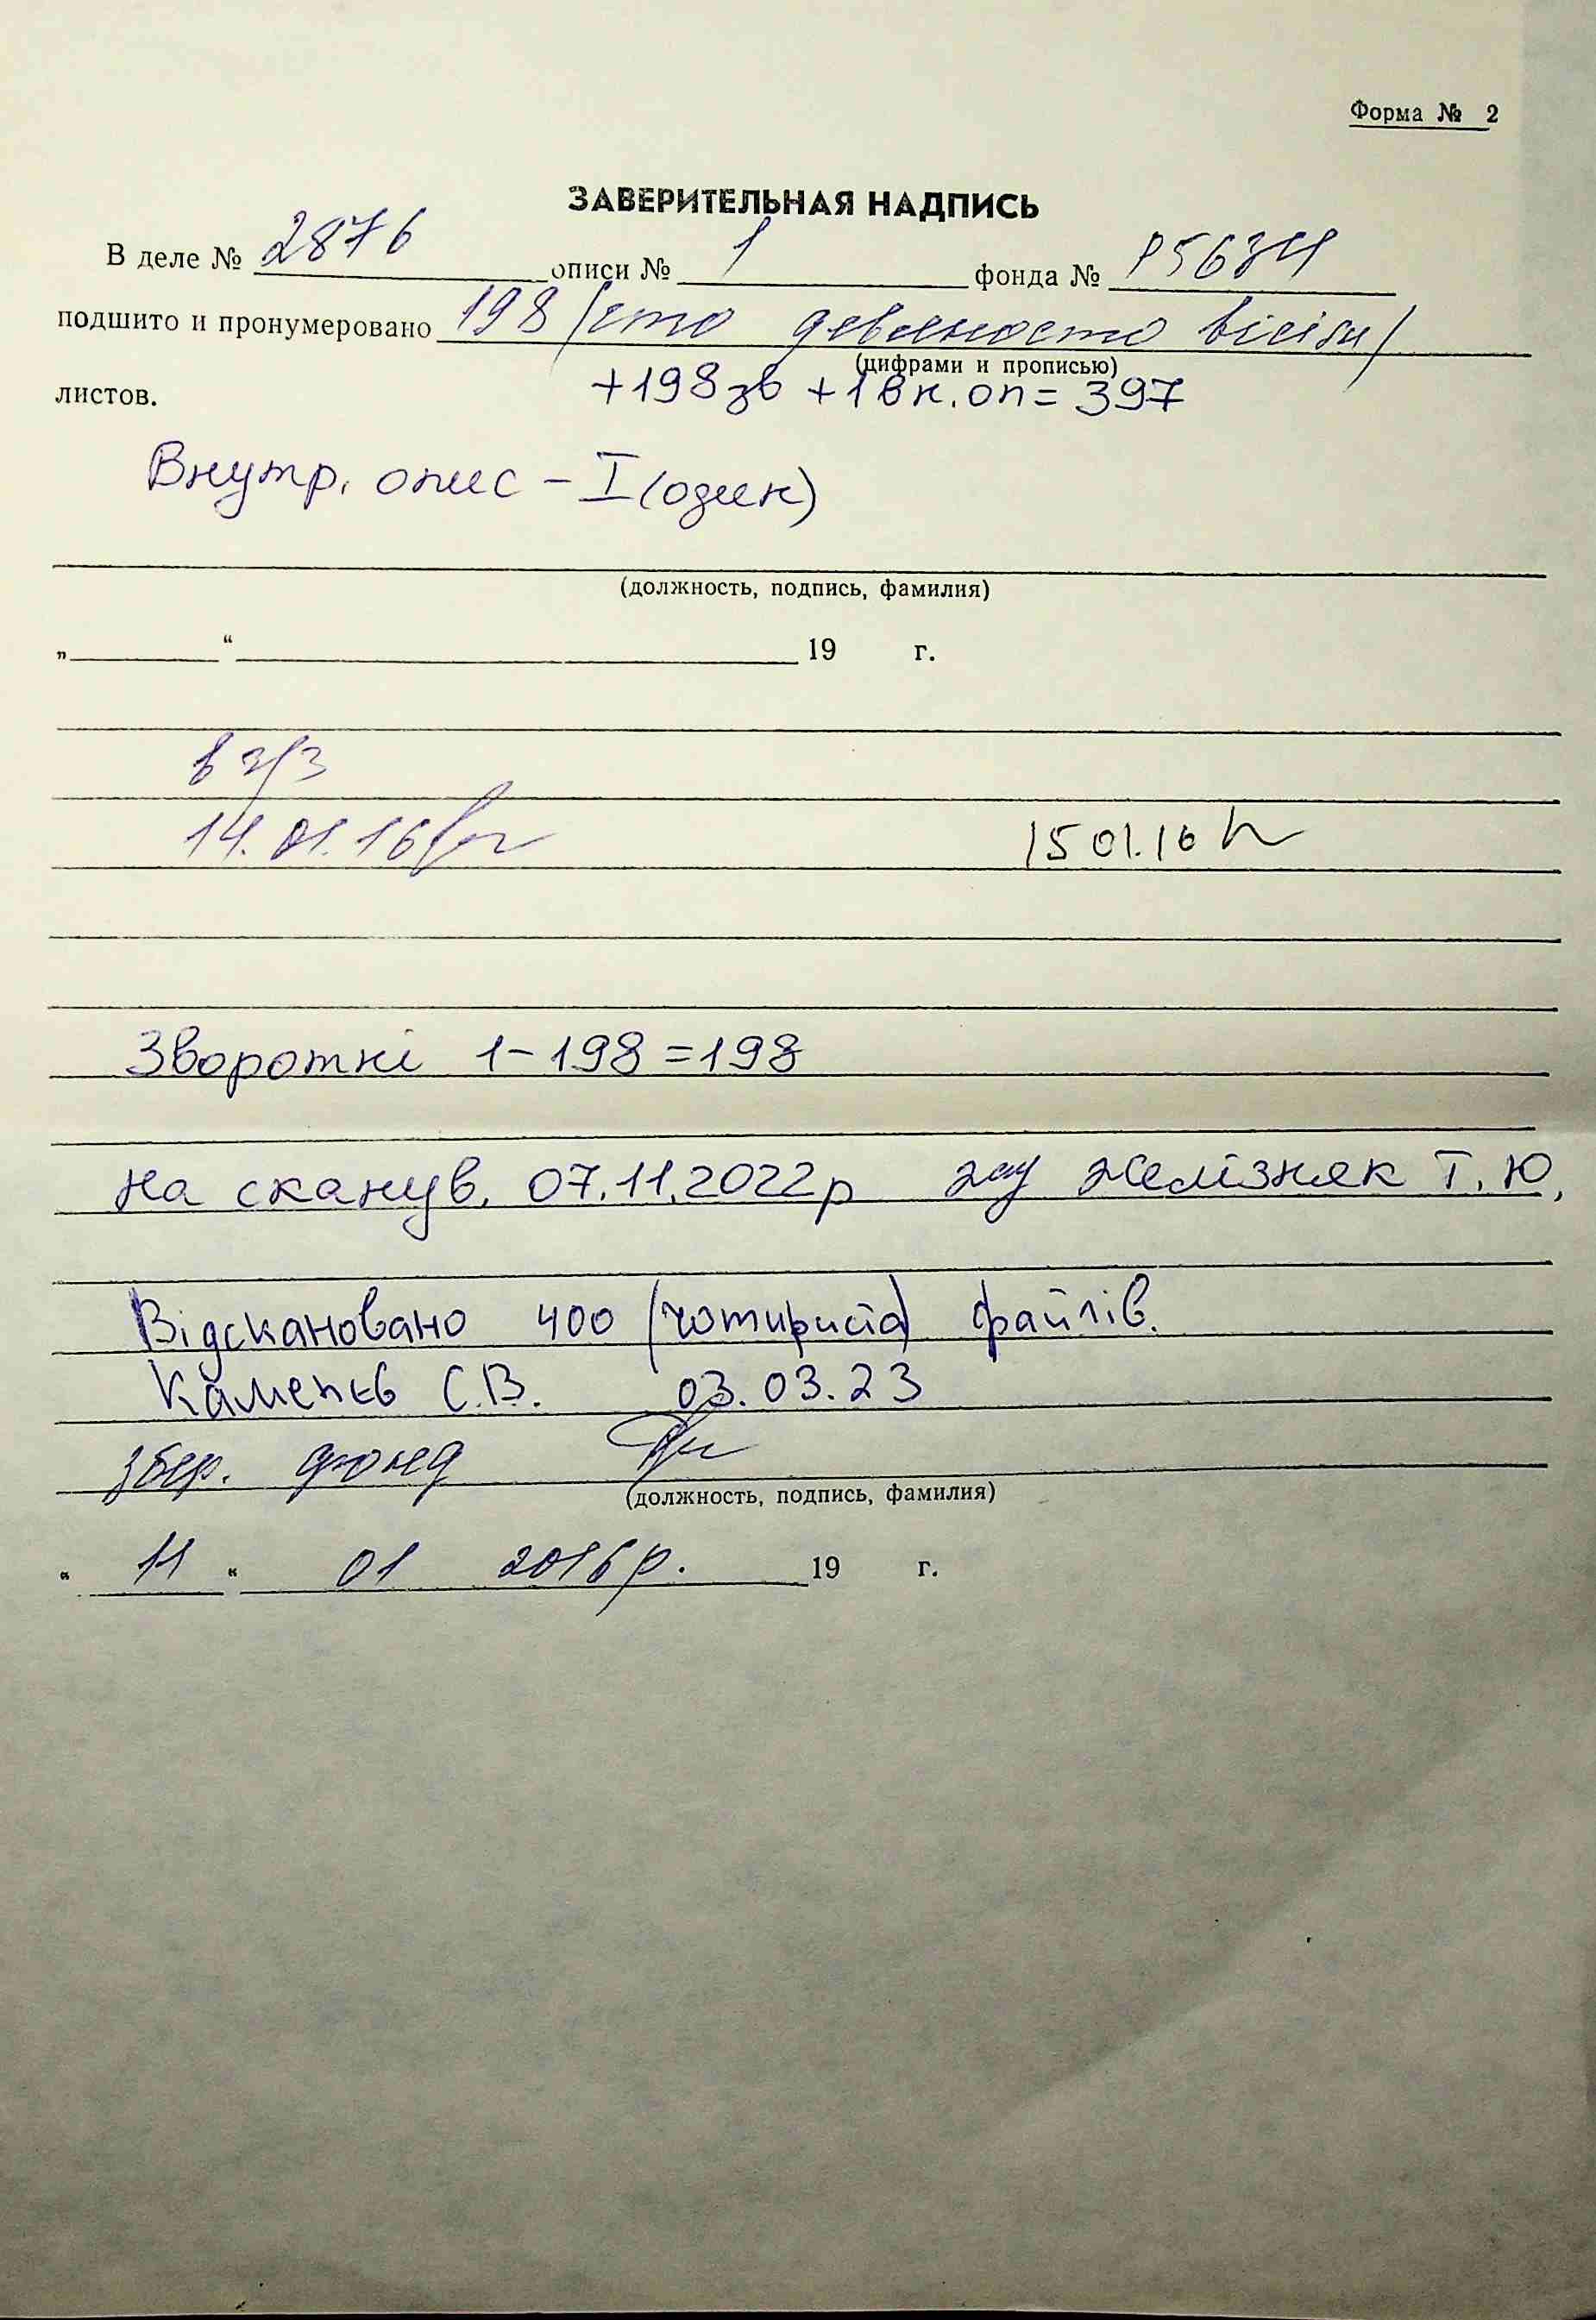 Форма № 2
ЗАВЕРИТЕЛЬНАЯ НАДПИСЬ
В деле № 2876 описи № 1 фонда № Р5634
подшито и пронумеровано 198 /сто девяносто вісім/
(цифрами и прописью)
листов. +198 зв + 1 вн. оп = 397
Внутр. опис – I (один)
(должность, подпись, фамилия)
„ “ 19 г.
в ч/з
14.01.16 15 01.16
Зворотні 1–198 = 198
на сканув. 07.11.2022р Желізняк Т. Ю,
Відскановано 400 (чотириста) файлів.
Каменєв С.В. 03.03.23
збер. фонд
(должность, подпись, фамилия)
“ 11 “ 01 2016 р. 19 г.